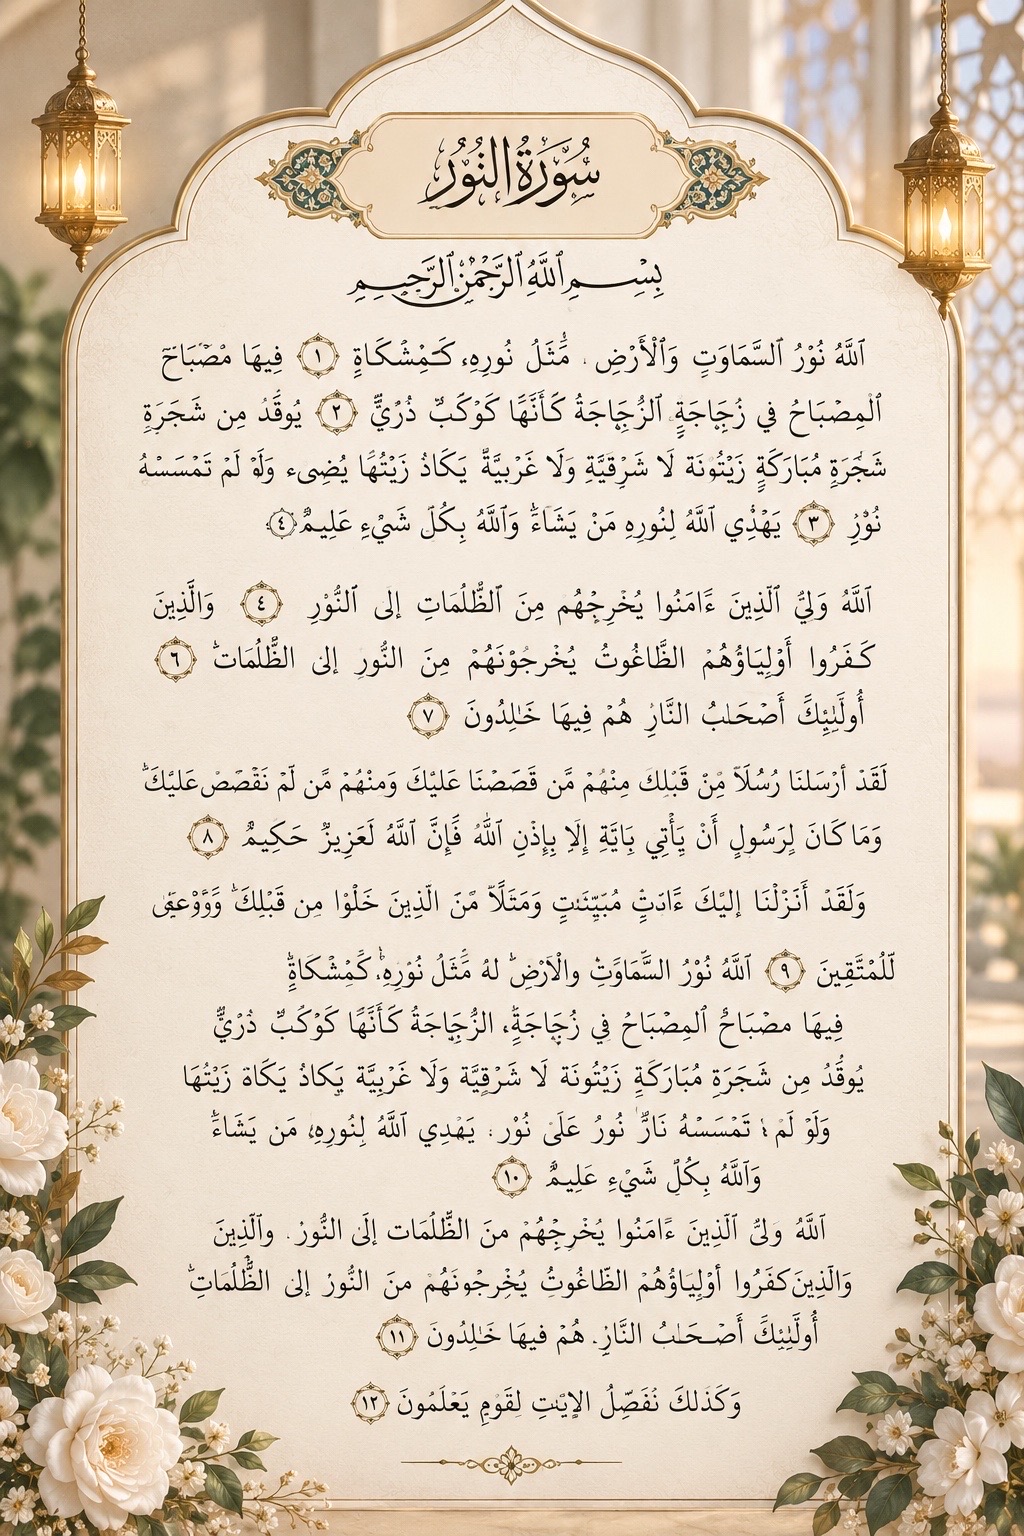 سُوْرَةُ النُّوْرُ
بِسْمِ ٱللَّهِ ٱلرَّحْمَٰنِ ٱلرَّحِيمِ
ٱللَّهُ نُوْرُ ٱلسَّمَاوَتِ وَٱلْأَرْضِ ۚ مَّثَلُ نُورِهِۦ كَمِشْكَاةٍ ١ فِيهَا مْصْبَاحَ
ٱلْمِصْبَاحُ فِي زُجَاجَةٍ ٱلزُّجَاجَةُ كَأَنَّهَا كَوْكَبٌ دُرِّيٌّ ٢ يُوقَدُ مِن شَجَرَةٍ
شَجَرَةٍ مُبَارَكَةٍ زَيْتُونَة لَا شَرْقِيَّةِ وَلَا غَرْبيَّةٌ يَكَادُ زَيْتُهَا يُضِىء وَلَوْ لَمْ تَمْسَسْهُ
نُوْرٌ ٣ يَهْدِي ٱللَّهُ لِنُورِهِ مَنْ يَشَاءُ وَٱللَّهُ بِكُلّ شَيْءٍ عَلِيمٌ ٤
ٱللَّهُ وَلِيُّ ٱلَّذِينَ ءَامَنُوا يُخْرِجُهُم مِنَ ٱلظُّلُمَاتِ إلَى ٱلنُّوْرِ ٤ وَالَّذِينَ
كَفَرُوا أَوْلِيَاؤُهُمْ الظَّاغُوتُ يُخْرجُوْنَهُمْ مِنَ النُّورِ إلىٰ الظُّلُمَاتِ ٦
أُولَٰئِكَ أَصْحَابُ النَّارِ هُمْ فِيهَا خَٰلِدُونَ ٧
لَقَدْ أرْسَلنَا رُسُلاً مِّنْ قَبْلِكَ مِنْهُمْ مَّن قَصَصْنَا عَليْكَ وَمنْهُمْ مَّن لّمْ نَقْصُصْ عَليْكَ
وَمَا كَانَ لِرَسُولٍ أَنْ يَأْتِي بِايَةٍ إِلَا بِإِذْنِ اللَّهُ فَإِنَّ اللَّهُ لَعَزِيزٌ حَكِيمٌ ٨
وَلَقَدْ أَنزَلْنَا إليْكَ مُبَيِّنَٰتٍ وَمَثَلًا مَّنَ الَّذِينَ خَلْوْا مِن قَبْلِكَ
لّلْمُتَّقِينَ ٩ ٱللَّهُ نُوْرُ السَّمَاوَتِ والْأرْضِ لهُ مَّثَلُ نُوْرِهِ كَمِشْكَاةٍ
فِيهَا مصْبَاحٌ ٱلمِصْبَاحُ فِي زُجَاجَةٍ، الزُّجَاجَةُ كَأَنَّهَا كَوْكُبٌ دُرِّيٌّ
يُوقَدُ مِن شَجَرَةِ مُبَارَكَةٍ زَيْتُونَة لَا شَرْقِيَّة وَلَا غَرْبِيَّة يَكَادُ يَكَاة زَيْتُهَا
وَلَوْ لَمْ تَمْسَسْهُ نَارٌ نُورُ عَلَىٰ نُوْر ۚ يَهْدِي ٱللَّهُ لِنُورِهِ، مَن يَشَاءُ
وَٱللَّهُ بِكُلِّ شَيْءٍ عَلِيمٌ ١٠
ٱللَّهُ وَلىُّ ٱلَّذِينَ ءَامَنُوا يُخْرِجُهُمْ منَ الظُّلُمَات إلَى النُّوْرْ. وٱلَّذِينَ
وَالَّذِينَ كفَرُوا أوْلِيَاؤُهُمْ الظَّاغُوتُ يُخْرِجُونَهُمْ منَ النُّورْ إلىٰ الظُّلُمَاتِ
أُولَٰئِكَ أَصْحَابُ النَّارِ. هُمْ فيهَا خَٰلِدُونَ ١١
وَكَذٰلكَ نُفَصِّلُ الإيٰتِ لِقَوْمٍ يَعْلَمُونَ ١٢